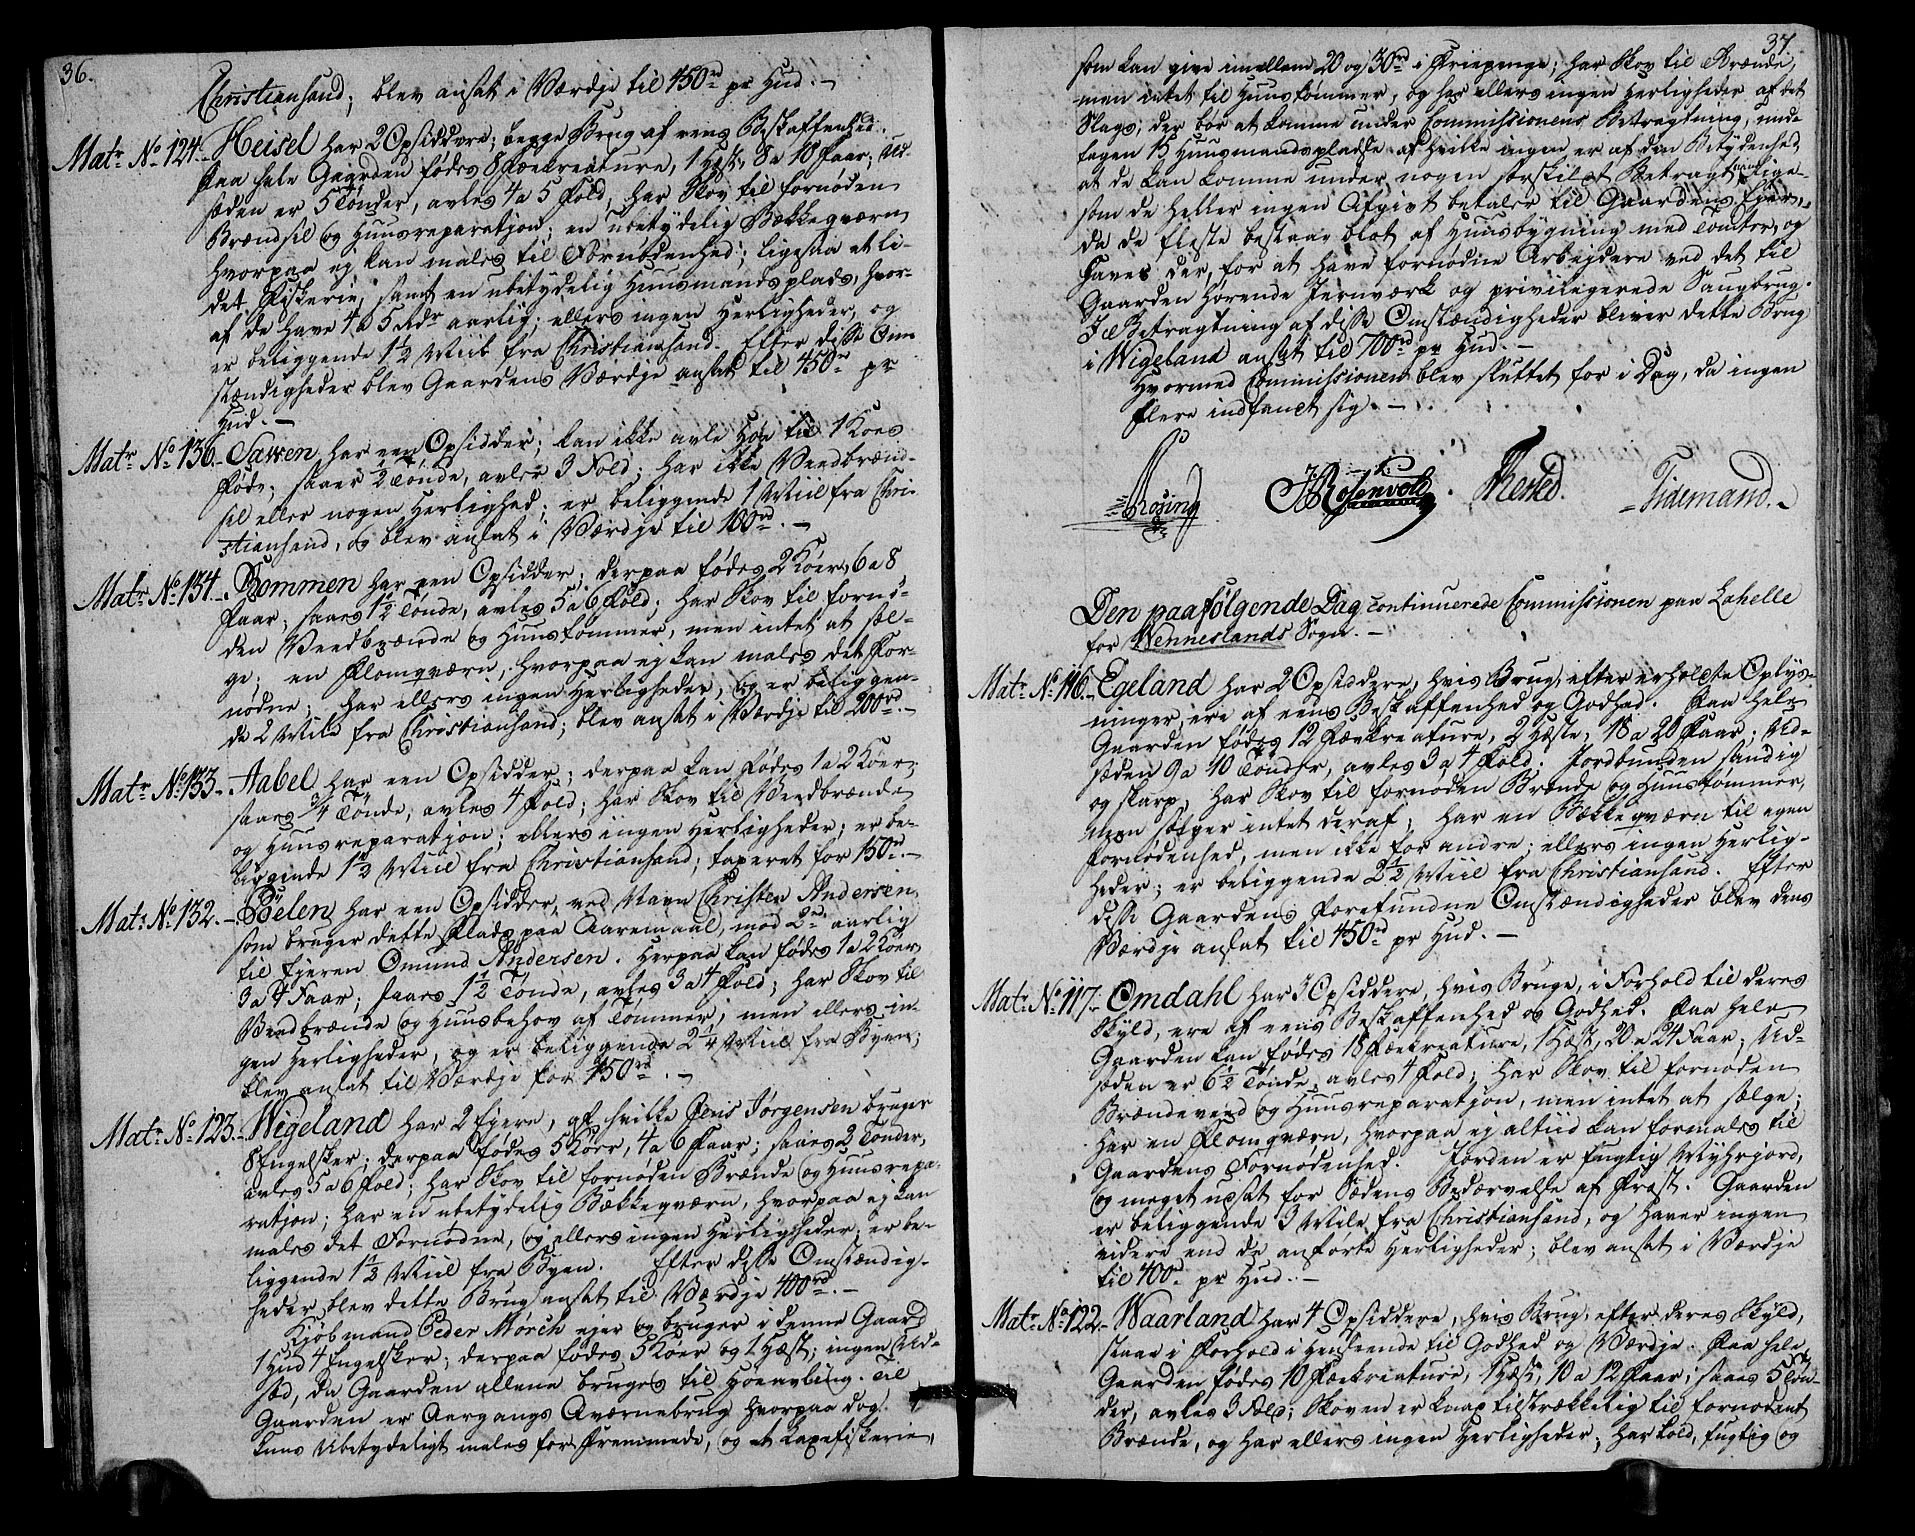 36.
Christiansand; blev ansat i Værdje til 450rd pr Hud. —
Matr. No 124. Heisel har 2 Opsiddere; begge Brug af eens Beskaffenhed.
Paa hele Gaarden fødes 8 Fækreature, 1 Hæst, 8 a 10 Faar; Ud-
sæden er 5 Tønder, avles 4 a 5 Fold, har Skov til fornøden
Brændsel og Huusreparatjon; en ubetydelig Bækkeqværn
hvorpaa ej kan males til Fornødenhed; ligesaa et li-
det Fiskerie, samt en ubetydelig Huusmandsplads, hvor-
af de have 4 a 5 Rdr aarlig; ellers ingen Herligheder, og
er beliggende 1½ Miil fra Christiansand. Efter disse Om-
stændigheder blev Gaardens Værdje ansat til 450rd pr
Hud. —
Matr. No 136. Sawen har een Opsidder; kan ikke avle Høe til 1 Koes
Føde; saaer ½ Tønde, avler 3 Fold; har ikke Veedbrænd-
sel eller nogen Herlighed; er beliggende 1 Miil fra Chri-
stiansand, og blev ansat i Værdje til 100rd. —
Matr. No 134. Rommen har een Opsidder; derpaa fødes 2 Køer, 6 a 8
Faar; saaes 1½ Tønde, avles 5 a 6 Fold; har Skov til fornø-
den Veedbrænde og Huustømmer, men intet at sæl-
ge; en Flomqværn, hvorpaa ej kan males det For-
nødne; har ellers ingen Herligheder, og er beliggen-
de 2 Mile fra Christiansand; blev ansat i Værdje til 200rd. —
Matr. No 133. Aabel har een Opsidder; derpaa kan fødes 1 a 2 Køer;
saaes ¾ Tønde, avles 4 Fold; har Skov til Veedbrænde
og Huusreparatjon; ellers ingen Herligheder; er be-
liggende 1½ Miil fra Christiansand; taxeret for 150rd. —
Matr. No 132. Bøelen har een Opsidder, ved Navn Christen Andersen,
som bruger dette Plads paa Aaremaal, mod 2rd aarlig
til Ejeren Omund Andersen. Herpaa kan fødes 1 a 2 Køer,
3 a 4 Faar; saaes 1½ Tønde, avles 3 a 4 Fold; har Skov til
Veedbrænde og Huusbehov af Tømmer; men ellers in-
gen Herligheder, og er beliggende 2¼ Miil fra Byen;
blev ansat til Værdje for 150rd. —
Matr. No 123. Wigeland har 2 Ejere, af hvilke Jens Jørgensen bruger
8 Engelsker; derpaa fødes 5 Køer, 4 a 6 Faar; saaes 2 Tønder,
avles 5 a 6 Fold; har Skov til fornøden Brænde og Huusrepa-
ratjon; har en ubetydelig Bækkeqværn, hvorpaa ej kan
males det Fornødne, og ellers ingen Herligheder; er be-
liggende 1½ Miil fra Byen. Efter disse Omstændig-
heder blev dette Brug ansat til Værdje 400rd. —
Kjøbmand Peder Mørch ejer og bruger i denne Gaard
1 Hud 4 Engelsker; derpaa fødes 5 Køer og 1 Hæst; ingen Ud-
sæd, da Gaarden allene bruges til Høeavling. Til
Gaarden er Aargangs Qværnebrug hvorpaa dog
kuns ubetydeligt males for Fremmede, og et Laxefiskerie,
37.
som kan give imellem 20 og 30rd i Friepenge; har Skov til Brænde,
men intet til Huustømmer, og har ellers ingen Herligheder af det
Slags, der bør at komme under Commissionens Betragtning, und-
tagen 15 Huusmandspladse af hvilke ingen er af den Betydenhed
at de kan komme under nogen særskilet Betragtning lige-
som de heller ingen Afgivt betaler til Gaardens Ejer,
da de fleste bestaae blot af Huusbygning med Tomter, og
haves der, for at have fornødne Arbejdere ved det til
Gaarden hørende Jernværk og privilegerede Saugbrug.
I Betragtning af disse Omstændigheder bliver dette Brug
i Wigeland ansat til 700rd pr Hud. —
Hvormed Commissionen blev sluttet for i Dag, da ingen
flere indfandt sig. —
Rosing JRosenvold. Thested. Tidemand.
Den paafølgende Dag continuerede Commissionen paa Lahelle
for Wenneslands Sogn. —
Matr. No 116. Egeland har 2 Opsiddere, hvis Brug, efter erholdte Oplys-
ninger, ere af eens Beskaffenhed og Godhed. Paa hele
Gaarden fødes 12 Fækreature, 2 Hæste, 18 a 20 Faar; Ud-
sæden 9 a 10 Tønder, avles 3 a 4 Fold. Jordbunden sandig
og skarp, har Skov til fornøden Brænde og Huustømmer,
men sælger intet deraf; har en Bækkeqværn til egen
Fornødenhed, men ikke for andre; ellers ingen Herlig-
heder; er beliggende 2½ Miil fra Christiansand. Efter
disse Gaardens forefundne Omstændigheder blev dens
Værdje ansat til 450rd pr Hud. —
Matr. No 117. Omdahl har 3 Opsiddere, hvis Bruge, i Forhold til deres
Skyld, ere af eens Beskaffenhed og Godhed. Paa hele
Gaarden kan fødes 18 Fækreature, 1 Hæst, 20 a 24 Faar; Ud-
sæden er 6½ Tønde, avles 4 Fold; har Skov til fornøden
Brændeveed og Huusreparatjon, men intet at sælge;
har en Flomqværn, hvorpaa ej altiid kan formales til
Gaardens Fornødenhed. Jorden er fugtig Myhrjord,
og meget udsat for Sædens Bedærvelse af Frost. Gaarden
er beliggende 3 Mile fra Christiansand, og haver ingen
videre end de anførte Herligheder; blev ansat i Værdje
til 400rd pr Hud. —
Matr. No 122. Waarland har 4 Opsiddere, hvis Brug, efter deres Skyld,
staae i Forhold i Henseende til Godhed og Værdje. Paa hele
Gaarden fødes 10 Fækreature, 1 Hæst, 10 a 12 Faar; saaes 5 Tøn-
der, avles 3 Fold; Skoven er knap tilstrækkelig til fornødent
Brænde, og har ellers ingen Herligheder; har kold, fugtig og